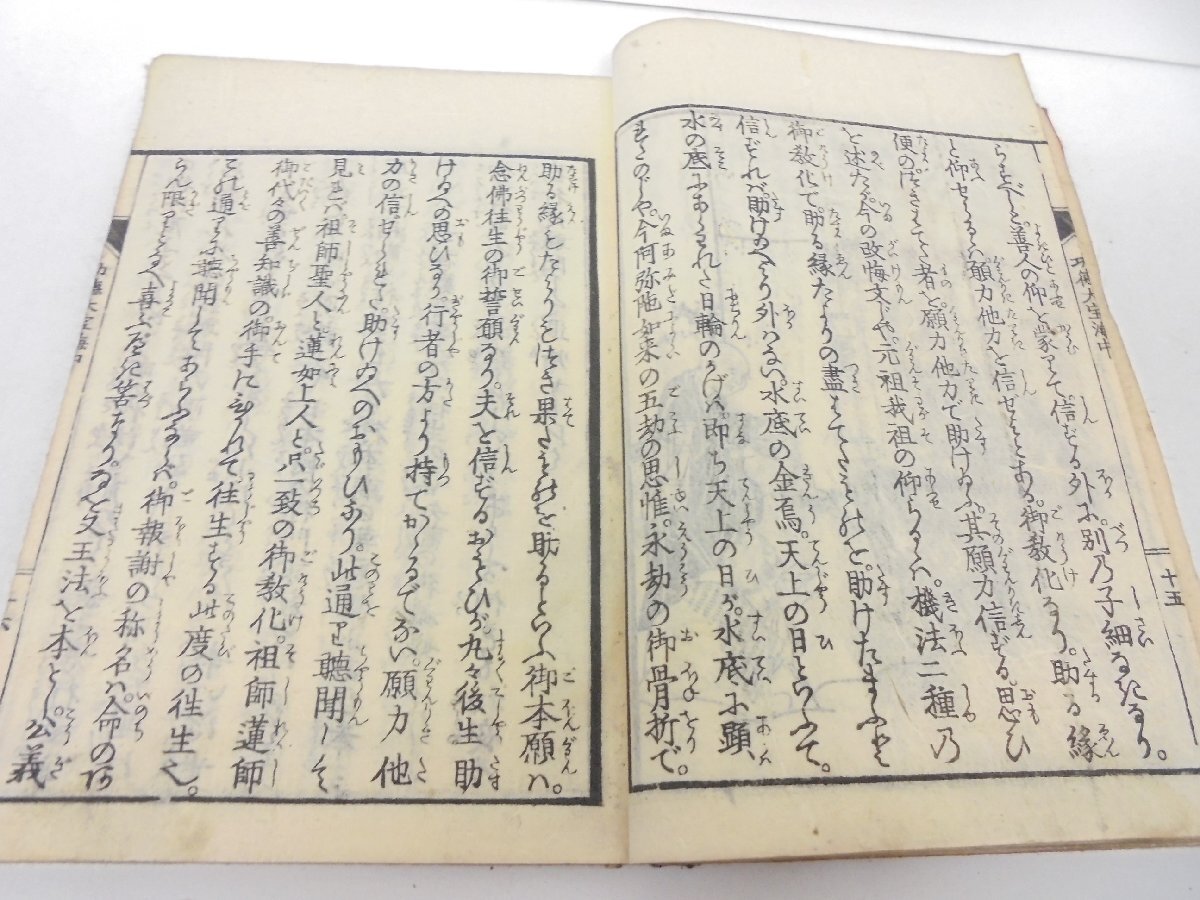 らずべしと善人の仰を蒙りて信ずる外に別乃子細なきなり。
と仰せらるゝハ願力他力を信ぜよとある。御教化なり。助る縁
便のつきはてた者を願力他力で助け給ふ。其願力信ずる思ひ
を述たが今の改悔文じや。元祖我祖の仰らるゝハ。機法二種乃
御教化で。助る縁たよりの盡はてたものを。助けたまふを
信ずれバ。助け給へより外ハない。水底の金烏。天上の日といふて。
水の底にあらわれた日輪のかげハ。即ち天上の日が。水底に顕
たのじや。今阿弥陀如来の五劫の思惟。永劫の御骨折で。
助る縁もたよりもつき果たものを助るといふ御本願ハ。
念佛往生の御誓願なり。夫を信ずるおもひが九々後生助
け給への思ひなり。行者の方より持てかゝるでない。願力他
力の信ぜられた。助け給へのおもひなり。此通り聴聞して
見れバ。祖師聖人と蓮如上人と。只一致の御教化。祖師蓮師
御代々の善知識の。御手にひかれて往生する此度の往生也。
これ通りに聴聞してあらふならバ。御報謝の称名ハ。命のあ
らん限りとなへ喜ぶべき苦なり。なを又王法を本とし。公義
十五